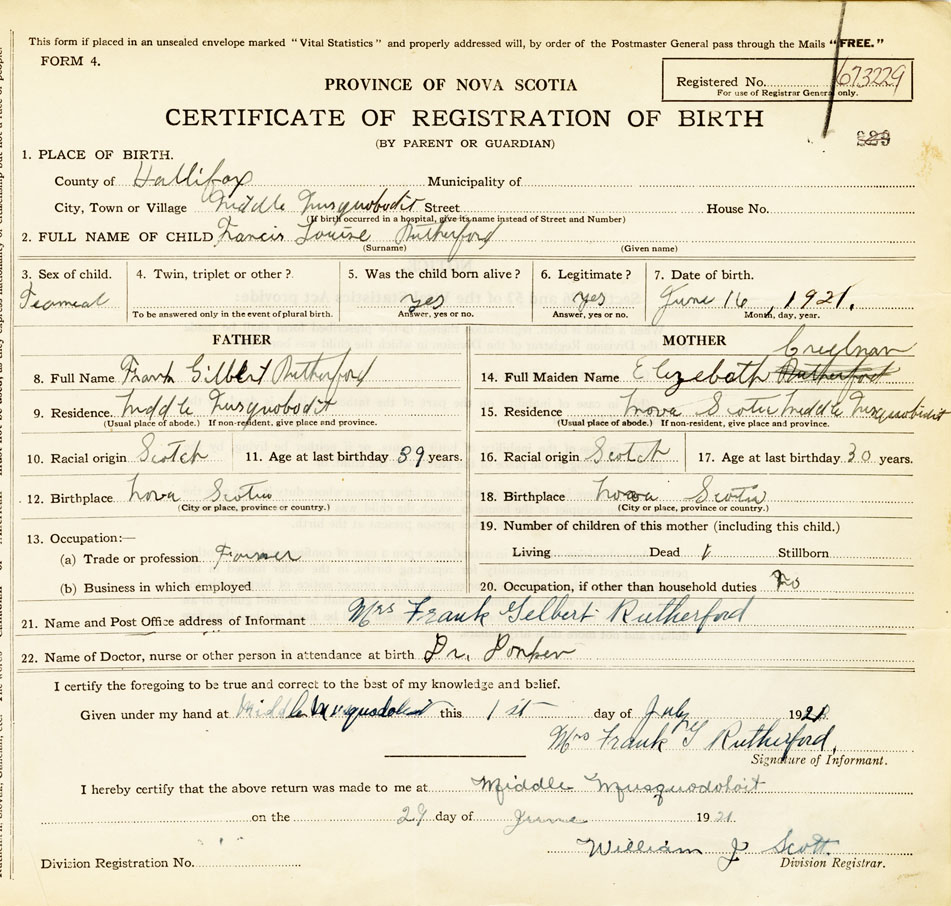 This form if placed in an unsealed envelope marked "Vital Statistics" and properly addressed will, by order of the Postmaster General pass through the Mails "FREE."
FORM 4.
Registered No. 673229
For use of Registrar General only.
PROVINCE OF NOVA SCOTIA
CERTIFICATE OF REGISTRATION OF BIRTH
(BY PARENT OR GUARDIAN)
1. PLACE OF BIRTH.
County of Hallifax Municipality of
City, Town or Village Middle Musquobodit Street House No.
(If birth occurred in a hospital, give its name instead of Street and Number)
2. FULL NAME OF CHILD Francis Louise Rutherford
(Surname) (Given name)
3. Sex of child. 4. Twin, triplet or other? 5. Was the child born alive? 6. Legitimate? 7. Date of birth.
Feameal yes yes June 16, 1921.
To be answered only in the event of plural birth. Answer, yes or no. Answer, yes or no. Month, day, year.
FATHER
8. Full Name Frank Gilbert Rutherford
9. Residence. Middle Musquobodit
(Usual place of abode.) If non-resident, give place and province.
10. Racial origin Scotch 11. Age at last birthday 39 years.
12. Birthplace Nova Scotia
(City or place, province or country.)
13. Occupation:—
(a) Trade or profession Farmer
(b) Business in which employed
MOTHER
14. Full Maiden Name Elizebath Rutherford
15. Residence Nova Scotia Middle Musquobidit
(Usual place of abode.) If non-resident, give place and province.
16. Racial origin Scotch 17. Age at last birthday 30 years.
18. Birthplace Nova Scotia
(City or place, province or country.)
19. Number of children of this mother (including this child.)
Living Dead Stillborn
20. Occupation, if other than household duties No
21. Name and Post Office address of Informant Mrs Frank Gelbert Rutherford
22. Name of Doctor, nurse or other person in attendance at birth Dr.
I certify the foregoing to be true and correct to the best of my knowledge and belief.
Given under my hand at Middle Musquodoboit this 1st day of July 1921.
Mrs Frank G Rutherford,
Signature of Informant.
I hereby certify that the above return was made to me at Middle Musquodoboit
on the 29 day of June 1921.
William J Scott.
Division Registration No. Division Registrar.